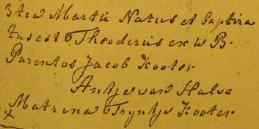 3tia Martii Natus et baptiza
tus est Theoderus ex w B.
Parentes Jacob Kooter
Antje van Halve
Matrina Tryntje Kooter